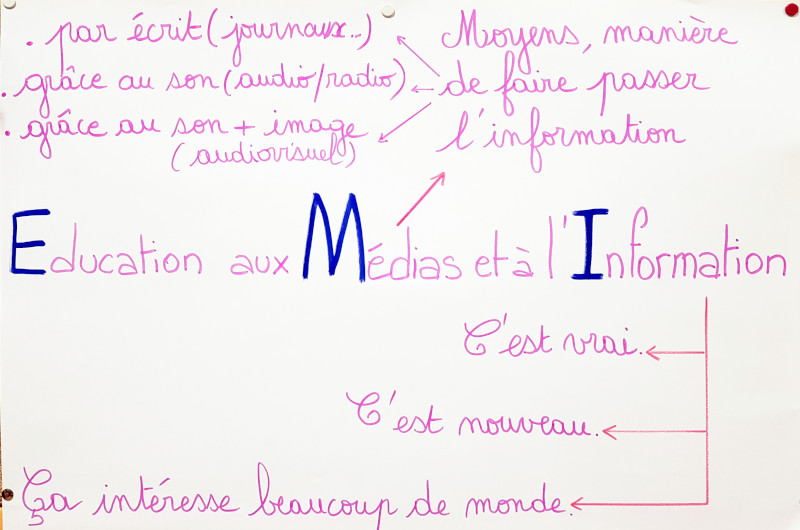 . par écrit (journaux...)
. grâce au son (audio/radio)
. grâce au son + image
(audiovisuel)
Moyens, manière
de faire passer
l'information
Education aux Médias et à l'Information
C'est vrai.
C'est nouveau.
Ça intéresse beaucoup de monde.